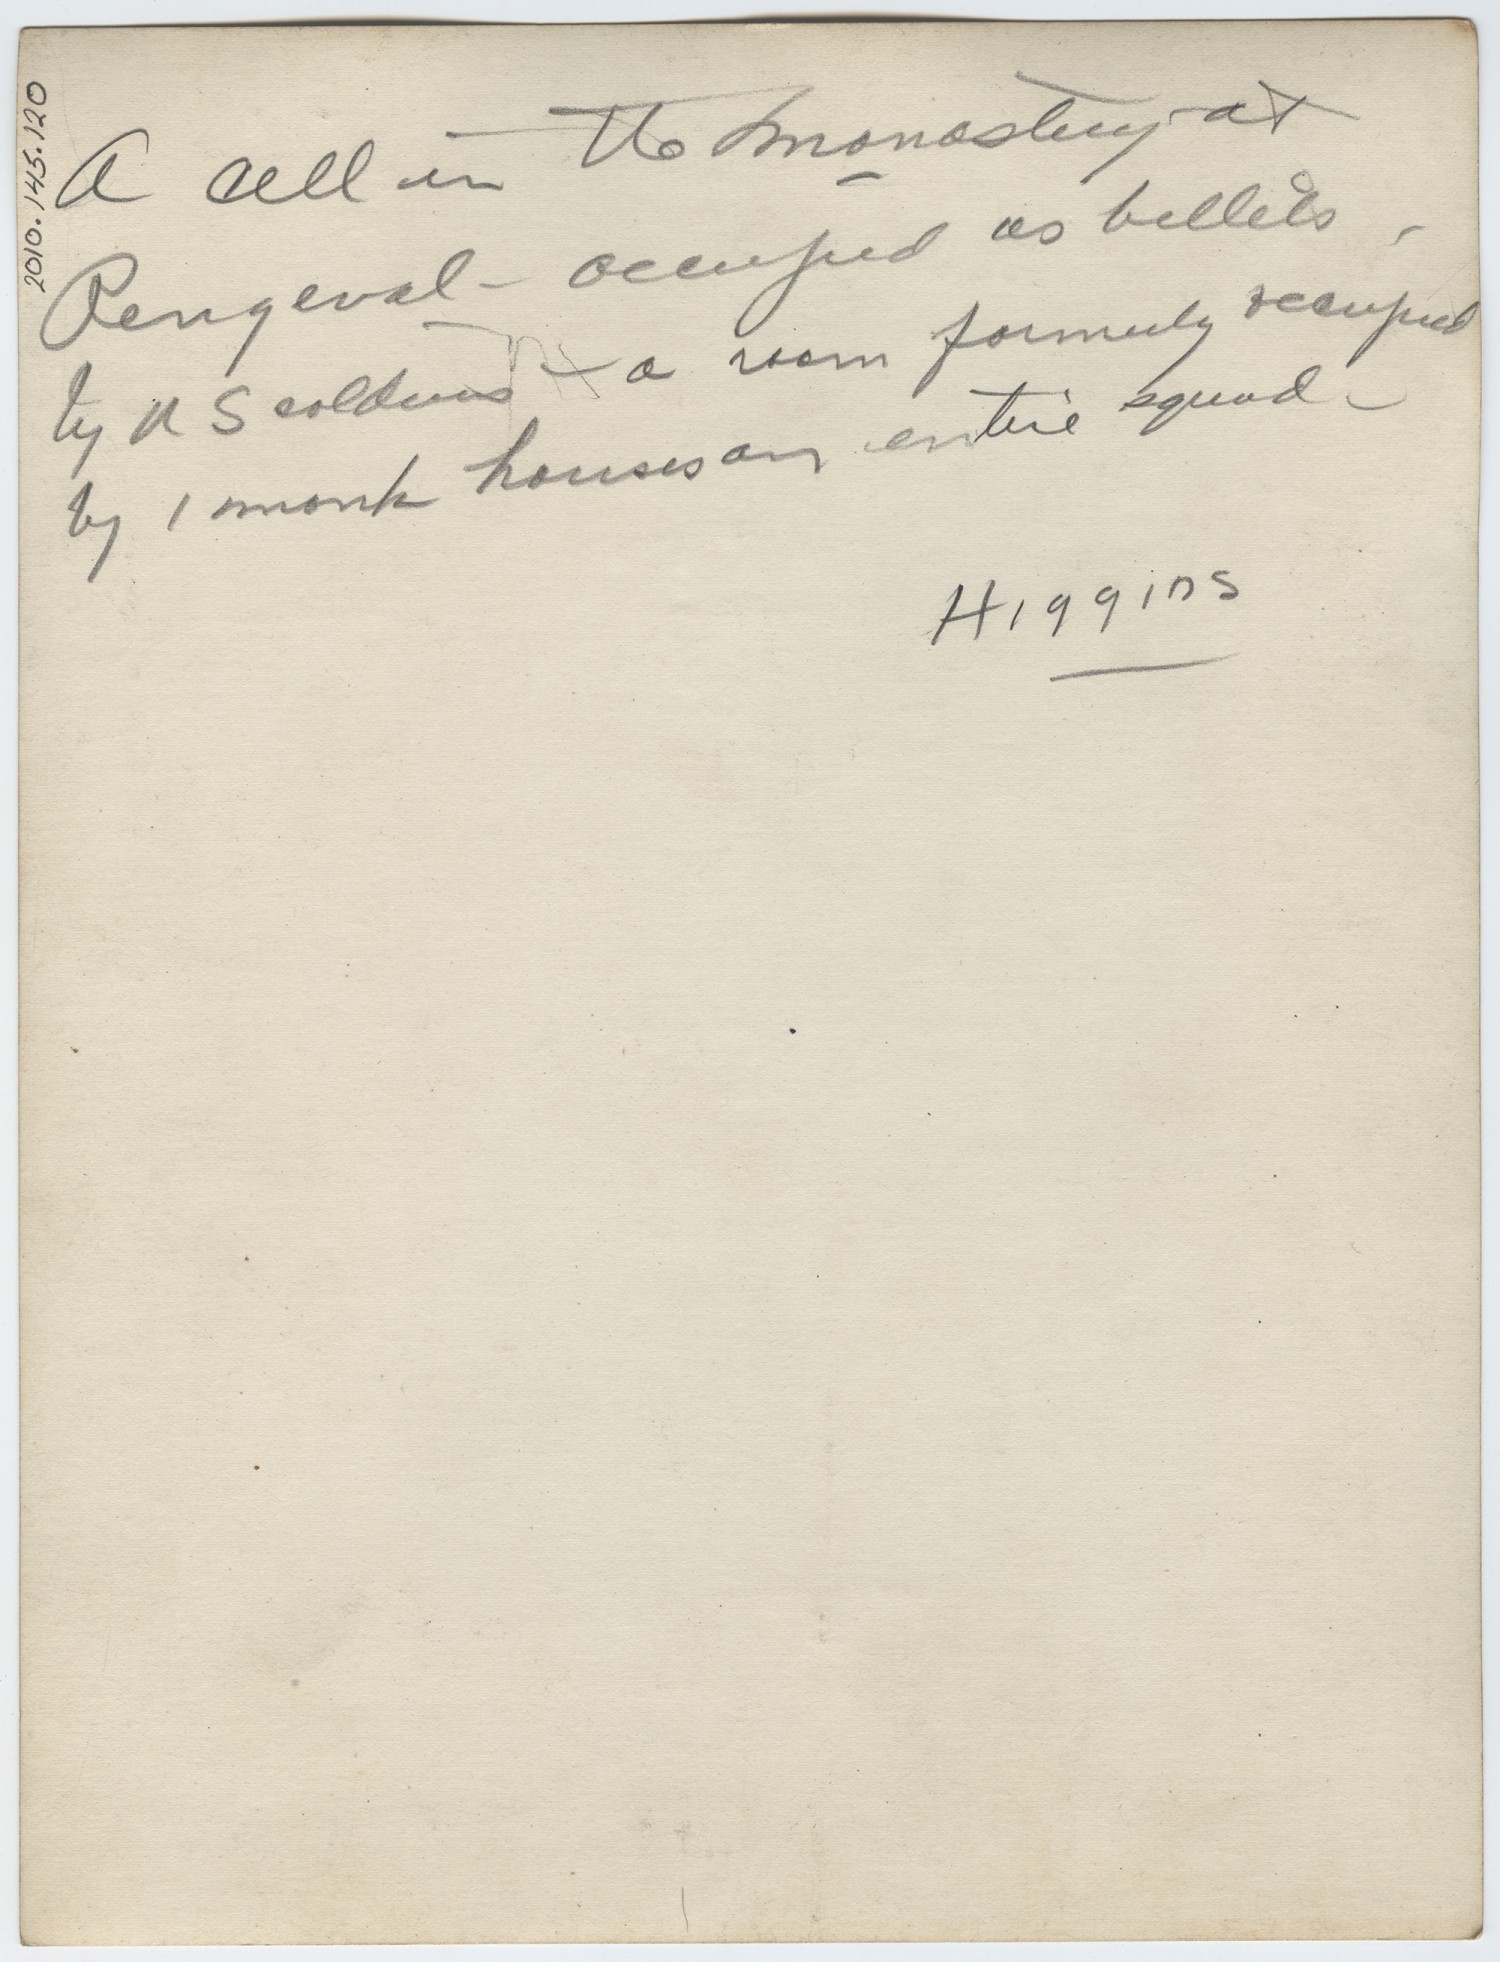 2010.145.120
A cell in the monastery at
Rengeval - occupied as billets -
by U S soldiers - a room formerly occupied
by 1 monk houses an entire squad -
Higgins